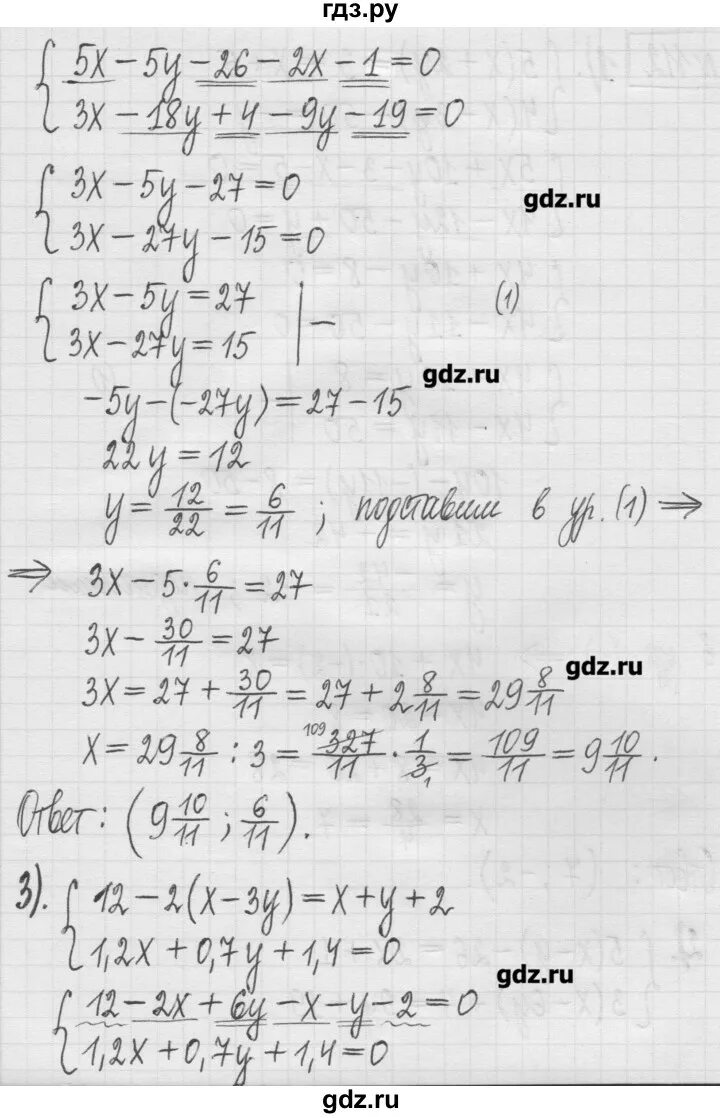 гдз.ру
{ 5x − 5y − 26 − 2x − 1 = 0
3x − 18y + 4 − 9y − 19 = 0
{ 3x − 5y − 27 = 0
3x − 27y − 15 = 0
gdz.ru
{ 3x − 5y = 27 | − (1)
3x − 27y = 15
gdz.ru
−5y − (−27y) = 27 − 15
22y = 12
y = 12/22 = 6/11 ; подставим в ур. (1) ⇒
⇒ 3x − 5 · 6/11 = 27
3x − 30/11 = 27
gdz.ru
3x = 27 + 30/11 = 27 + 2 8/11 = 29 8/11
x = 29 8/11 : 3 = 109 327/11 · 1/3 1 = 109/11 = 9 10/11 .
Ответ: (9 10/11 ; 6/11).
3). { 12 − 2(x − 3y) = x + y + 2
1,2x + 0,7y + 1,4 = 0
gdz.ru
{ 12 − 2x + 6y − x − y − 2 = 0
1,2x + 0,7y + 1,4 = 0
gdz.ru